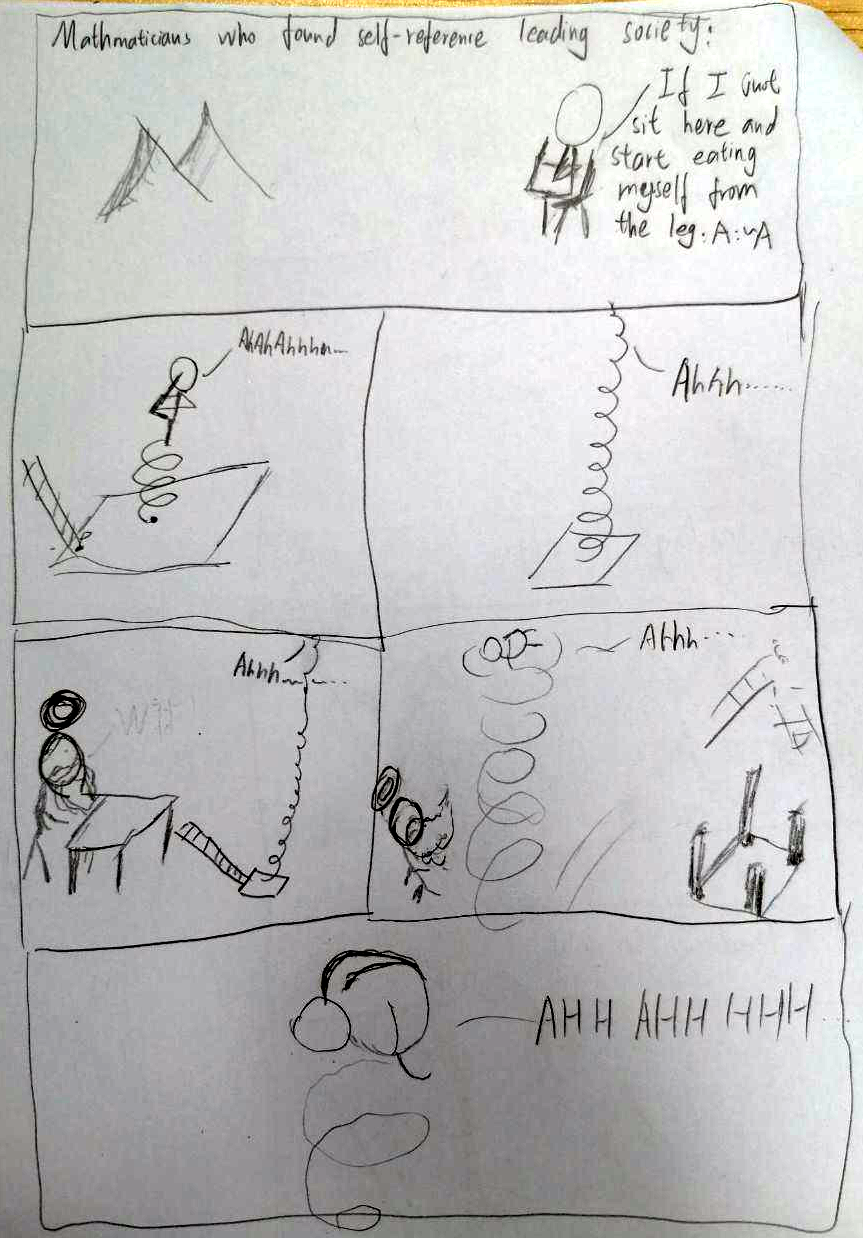 Mathmaticians who found self-reference leading society:
If I just
sit here and
start eating
myself from
the leg. A:~A
AhAhAhhhh....
Ahhh......
Ahhh.........
WTF
Ahhh....
AHH AHH HHH...